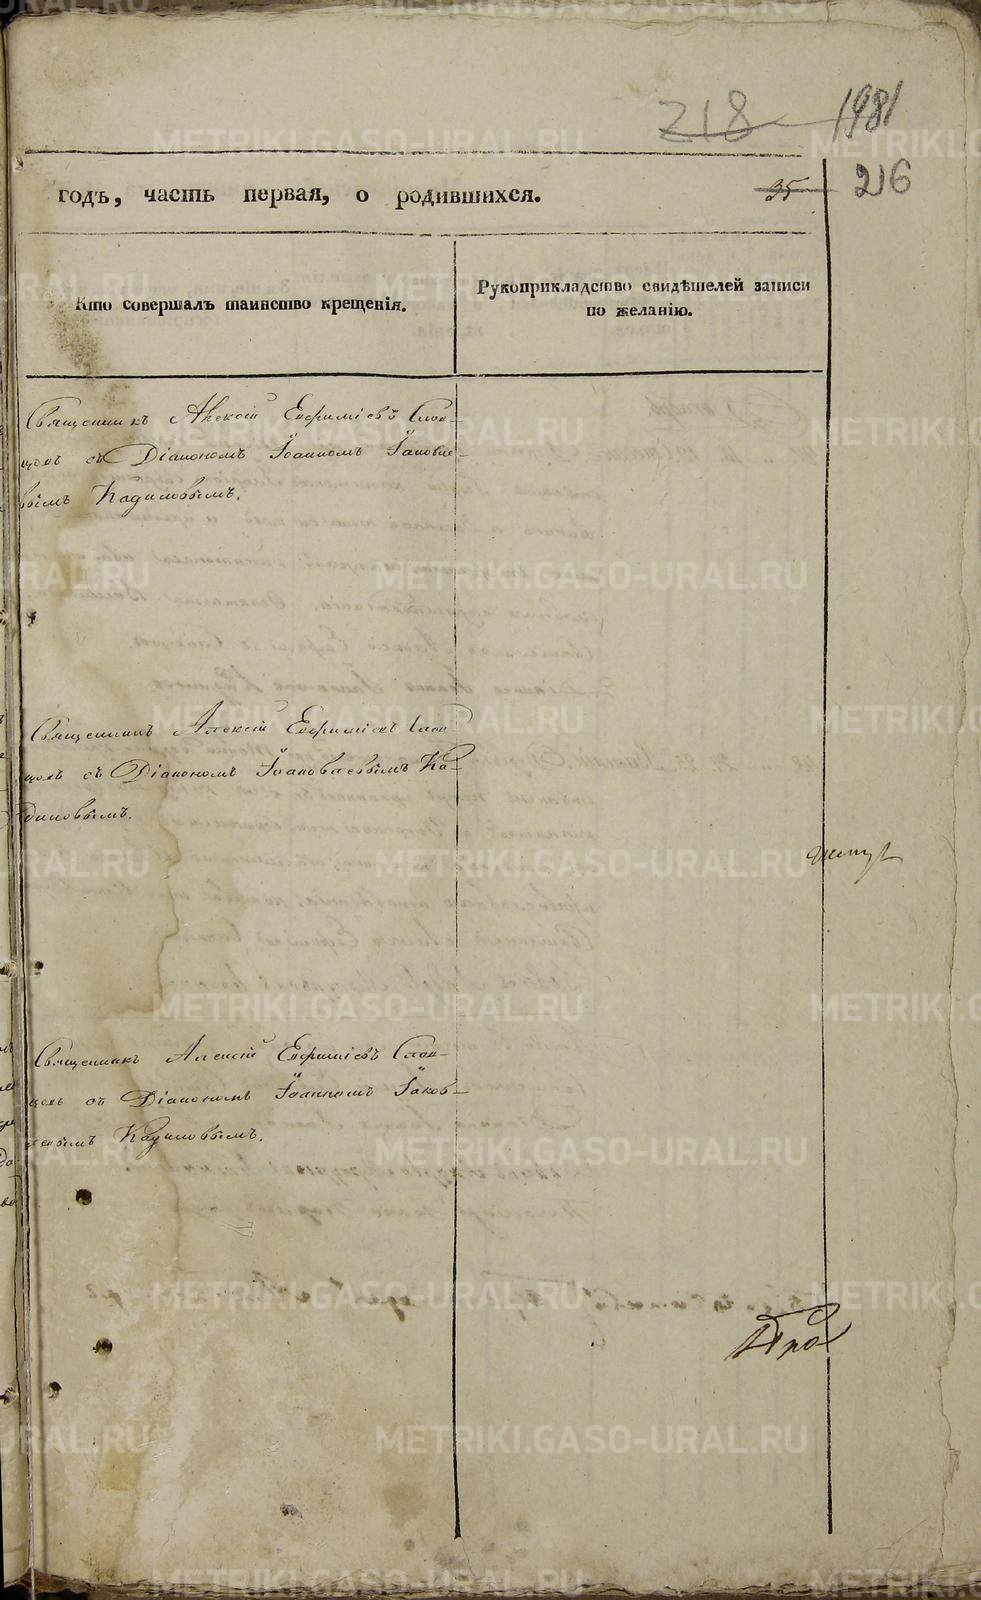 218 1981
годъ, часть первая, о родившихся. 35 216
Кто совершалъ таинство крещенія.
Рукоприкладство свидѣтелей записи
по желанію.
Священникъ Алексій Евфиміевъ Слов-
цовъ съ Діакономъ Іоанномъ Іаковле-
вымъ Кадиловымъ.
Священникъ Алексій Евфиміевъ Слов-
цовъ съ Діакономъ Ка-
диловымъ.
Священникъ Алексій Евфиміевъ Слов-
цовъ съ Діакономъ Іоанномъ Іаков-
левымъ Кадиловымъ.
METRIKI.GASO-URAL.RU